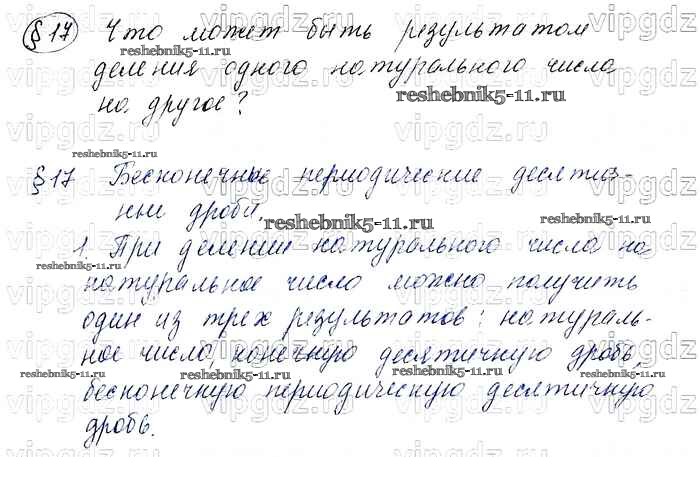 § 17 Что может быть результатом
деления одного натурального числа
на другое?
§ 17 Бесконечные периодические десятич-
ные дроби.
1. При делении натурального числа на
натуральное число можно получить
один из трех результатов: натураль-
ное число, конечную десятичную дробь,
бесконечную периодическую десятичную
дробь.